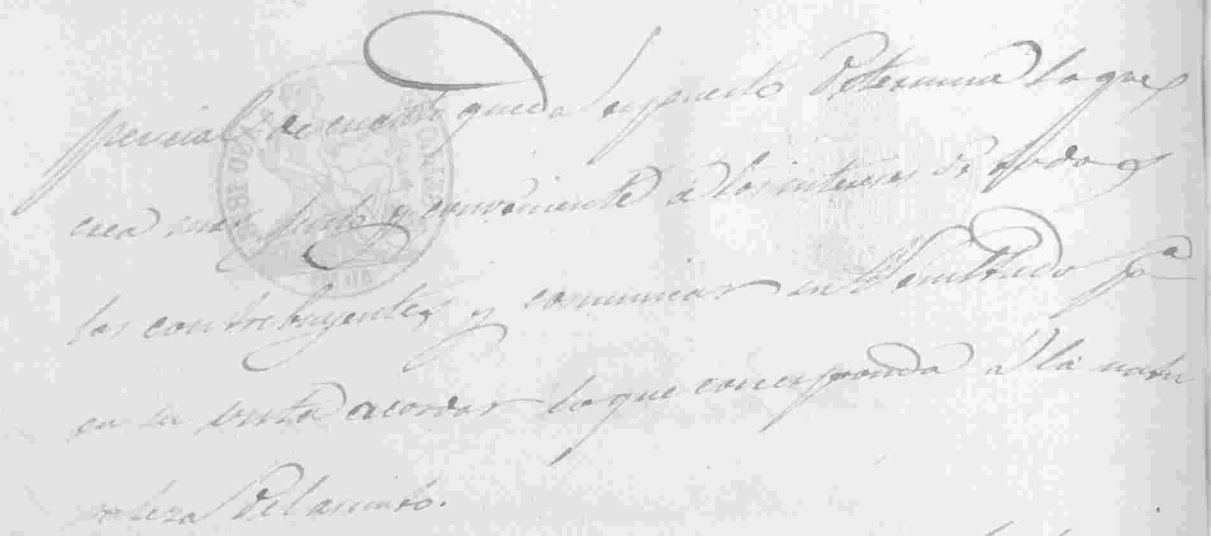 pericial de cuanto queda expuesto determine lo que
crea mas justo y conveniente a los intereses de todos
los contribuyentes y comunicar su resultado pª
en su vista acordar lo que corresponda á la natu
raleza del asunto.